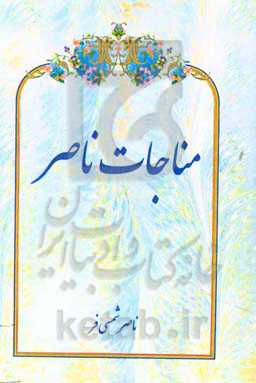 مناجات ناصر
خانه کتاب و ادبیات ایران
ناصر شمسی فر
ketab.ir